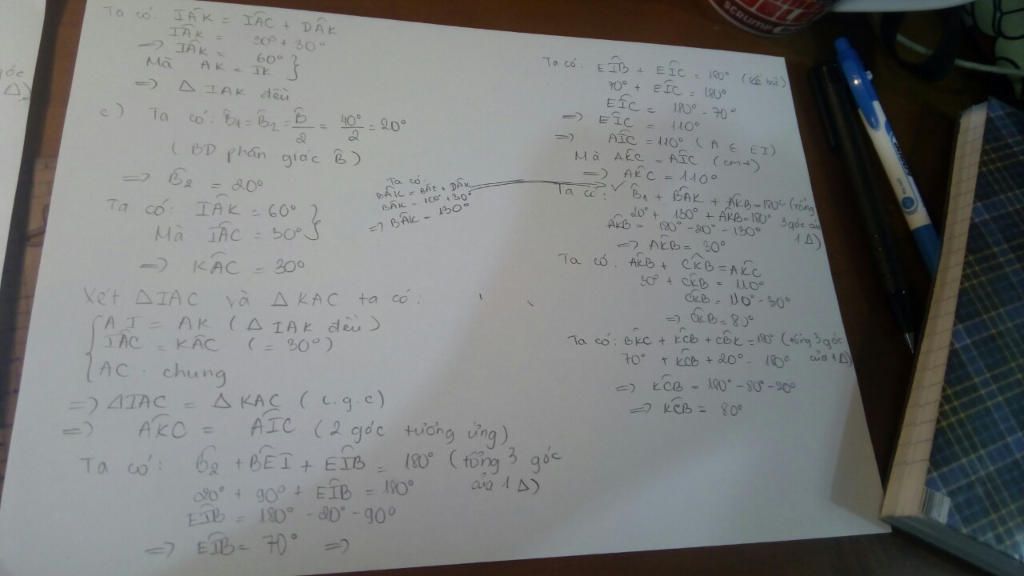 Ta có: IÂK = IÂC + DÂK
IÂK = 30° + 30°
=> IÂK = 60° }
Mà AK = IK
=> Δ IAK đều
c) Ta có: B̂1 = B̂2 = B̂/2 = 40°/2 = 20°
( BD phân giác B̂ )
=> B̂2 = 20°
Ta có: IÂK = 60° }
Mà IÂC = 30°
=> KÂC = 30°
Xét ΔIAC và Δ KAC ta có:
{ AI = AK ( Δ IAK đều )
IÂC = KÂC ( = 30° )
AC chung
=> ΔIAC = Δ KAC ( c.g.c )
=> AK̂C = AÎC ( 2 góc tương ứng )
Ta có: B̂2 + BÊI + EÎB = 180° ( tổng 3 góc
của 1 Δ )
20° + 90° + EÎB = 180°
EÎB = 180° - 20° - 90°
=> EÎB = 70° =>
Ta có:
=> BÂK = 130°
Ta có: EÎB + EÎC = 180° ( kề bù )
70° + EÎC = 180°
EÎC = 180° - 70°
=> EÎC = 110°
=> AÎC = 110° ( A ∈ EI )
Mà AK̂C = AÎC ( cmt )
=> AK̂C = 110°
Ta có: B̂1 + BÂK + AK̂B = 180° ( tổng
3 góc của
1 Δ )
20° + 130° + AK̂B = 180°
AK̂B = 180° - 20° - 130°
=> AK̂B = 30°
Ta có: AK̂B + CK̂B = AK̂C
30° + CK̂B = 110°
CK̂B = 110° - 30°
=> CK̂B = 80°
Ta có: BK̂C + KĈB + CB̂K = 180° ( tổng 3 góc
của 1 Δ )
70° + KĈB + 20° = 180°
=> KĈB = 180° - 80° - 20°
=> KĈB = 80°